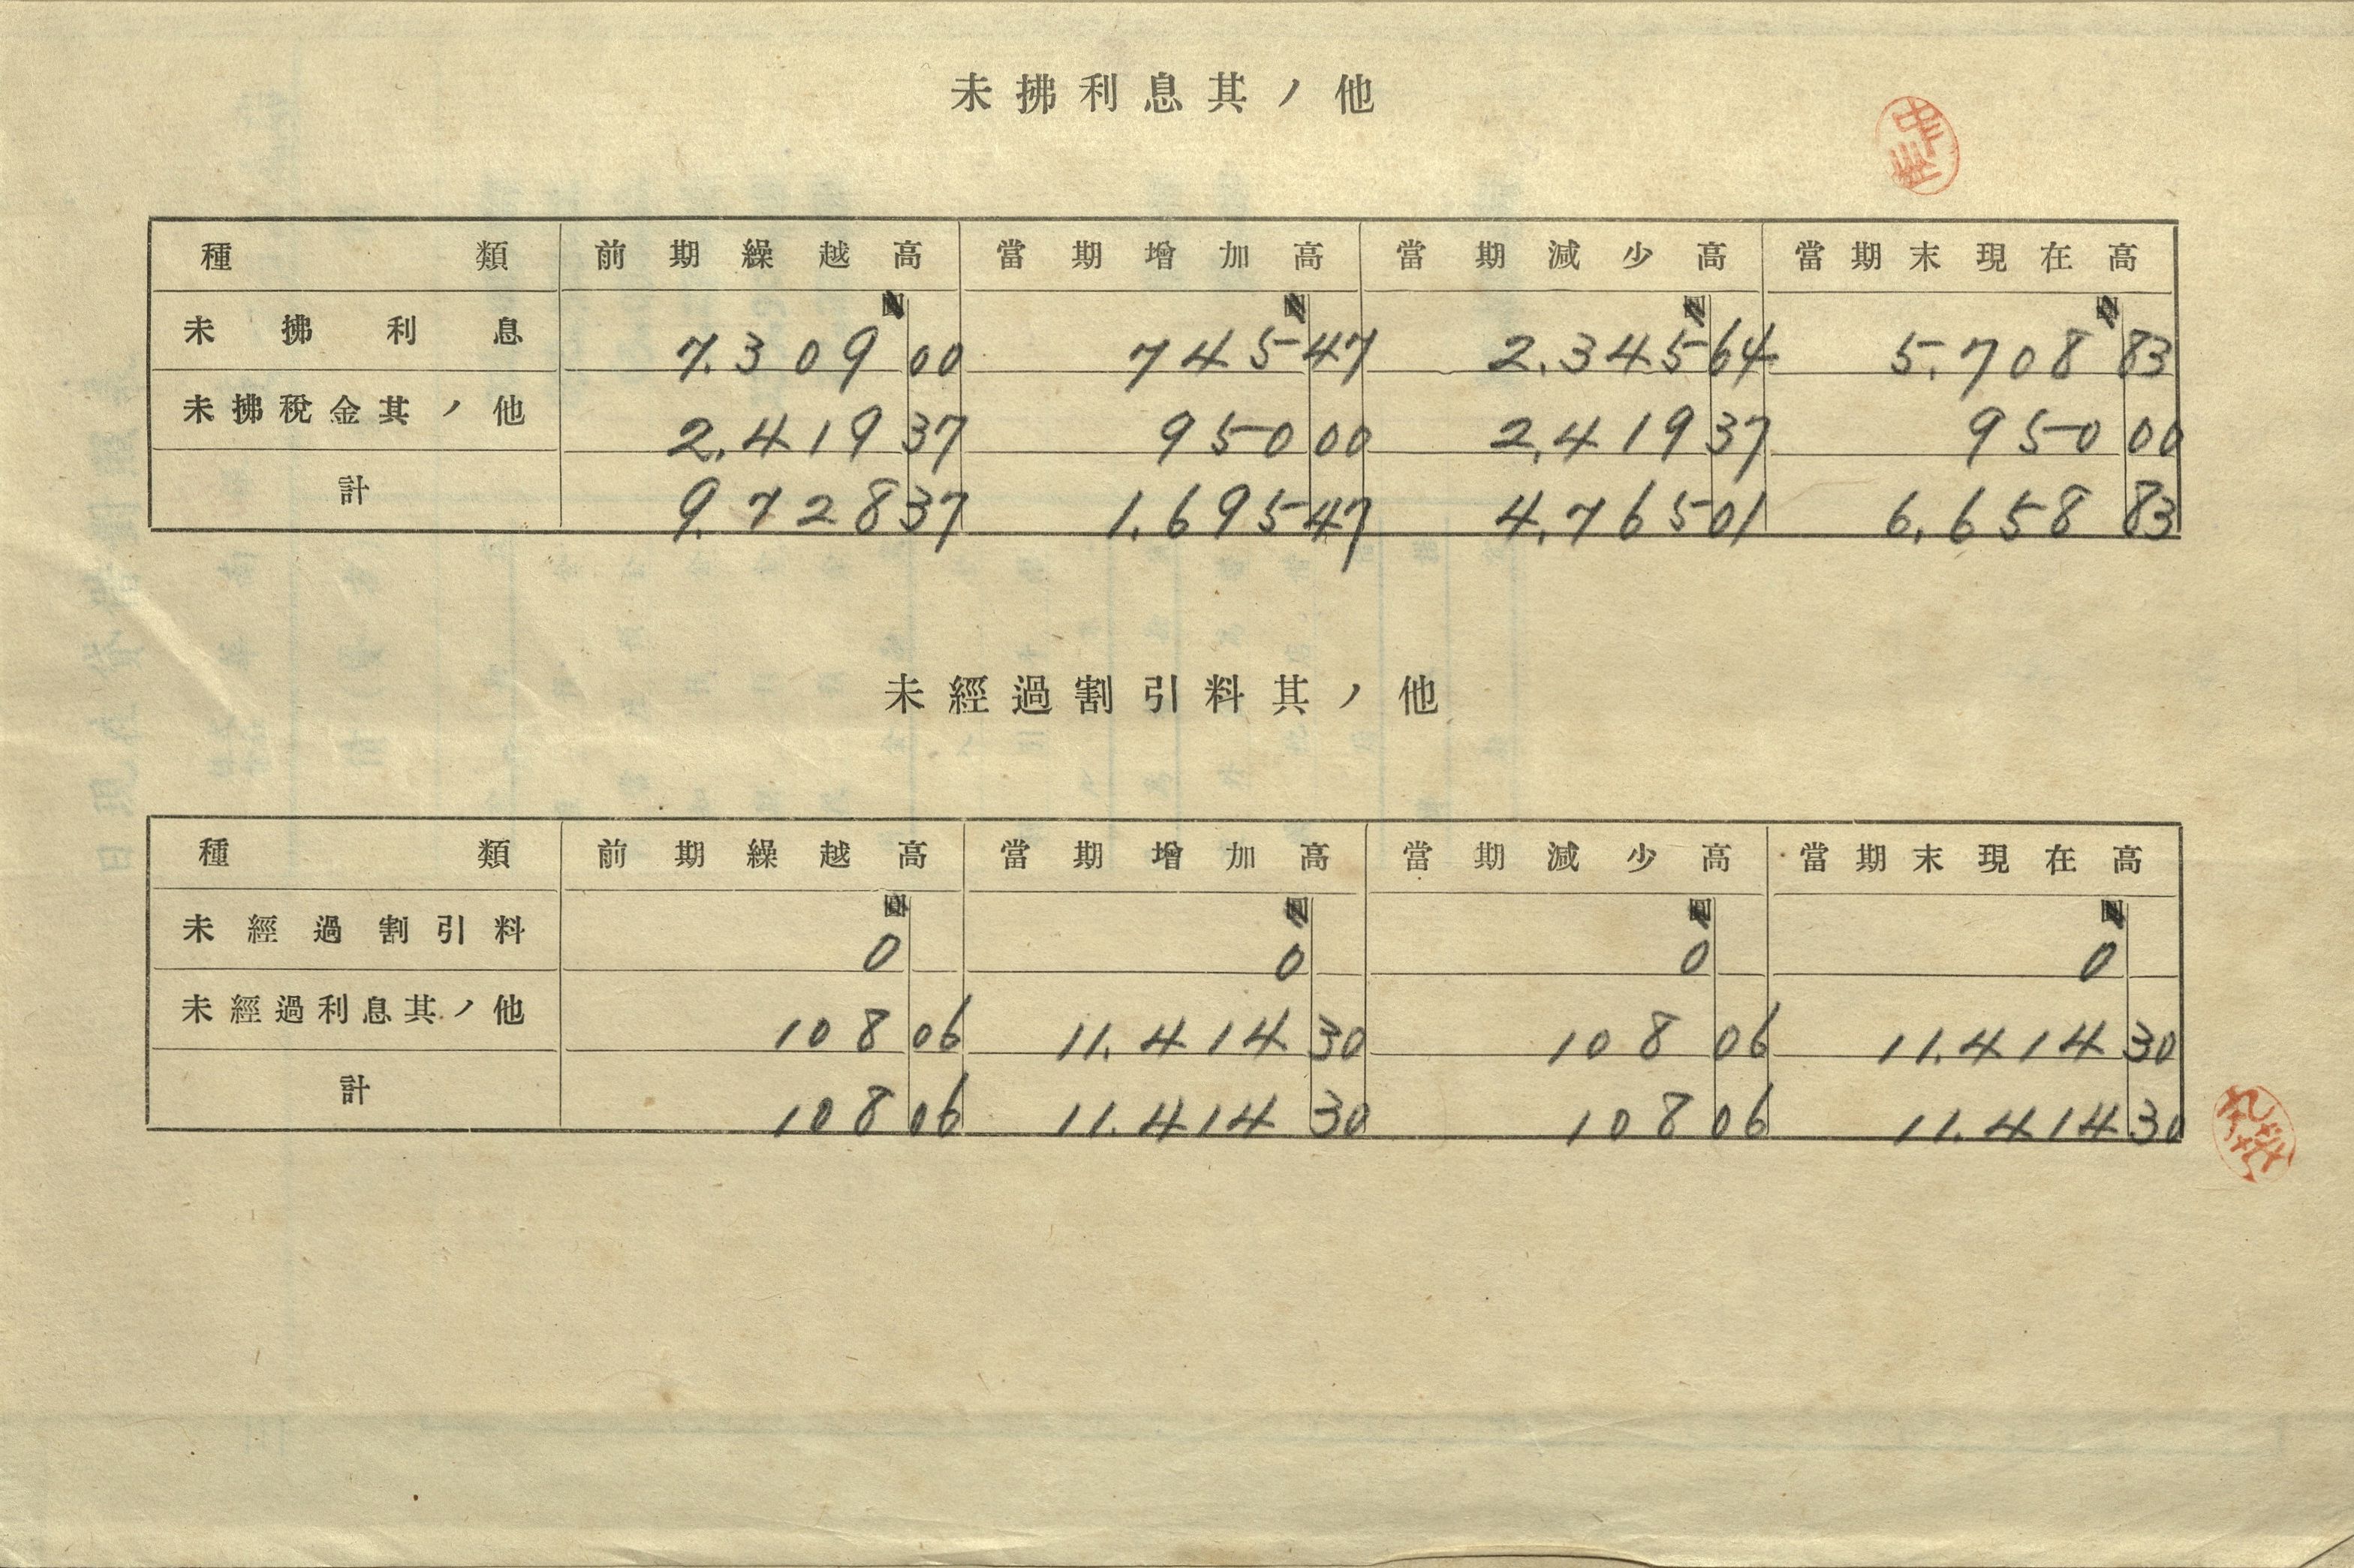 未拂利息其ノ他
種類 前期繰越高 當期增加高 當期減少高 當期末現在高
未拂利息 7.309 00 745 47 2.345 64 5.708 83
未拂税金其ノ他 2.419 37 950 00 2.419 37 950 00
計 9.728 37 1.695 47 4.765 01 6.658 83
未經過割引料其ノ他
種類 前期繰越高 當期增加高 當期減少高 當期末現在高
未經過割引料 0 0 0 0
未經過利息其ノ他 108 06 11.414 30 108 06 11.414 30
計 108 06 11.414 30 108 06 11.414 30